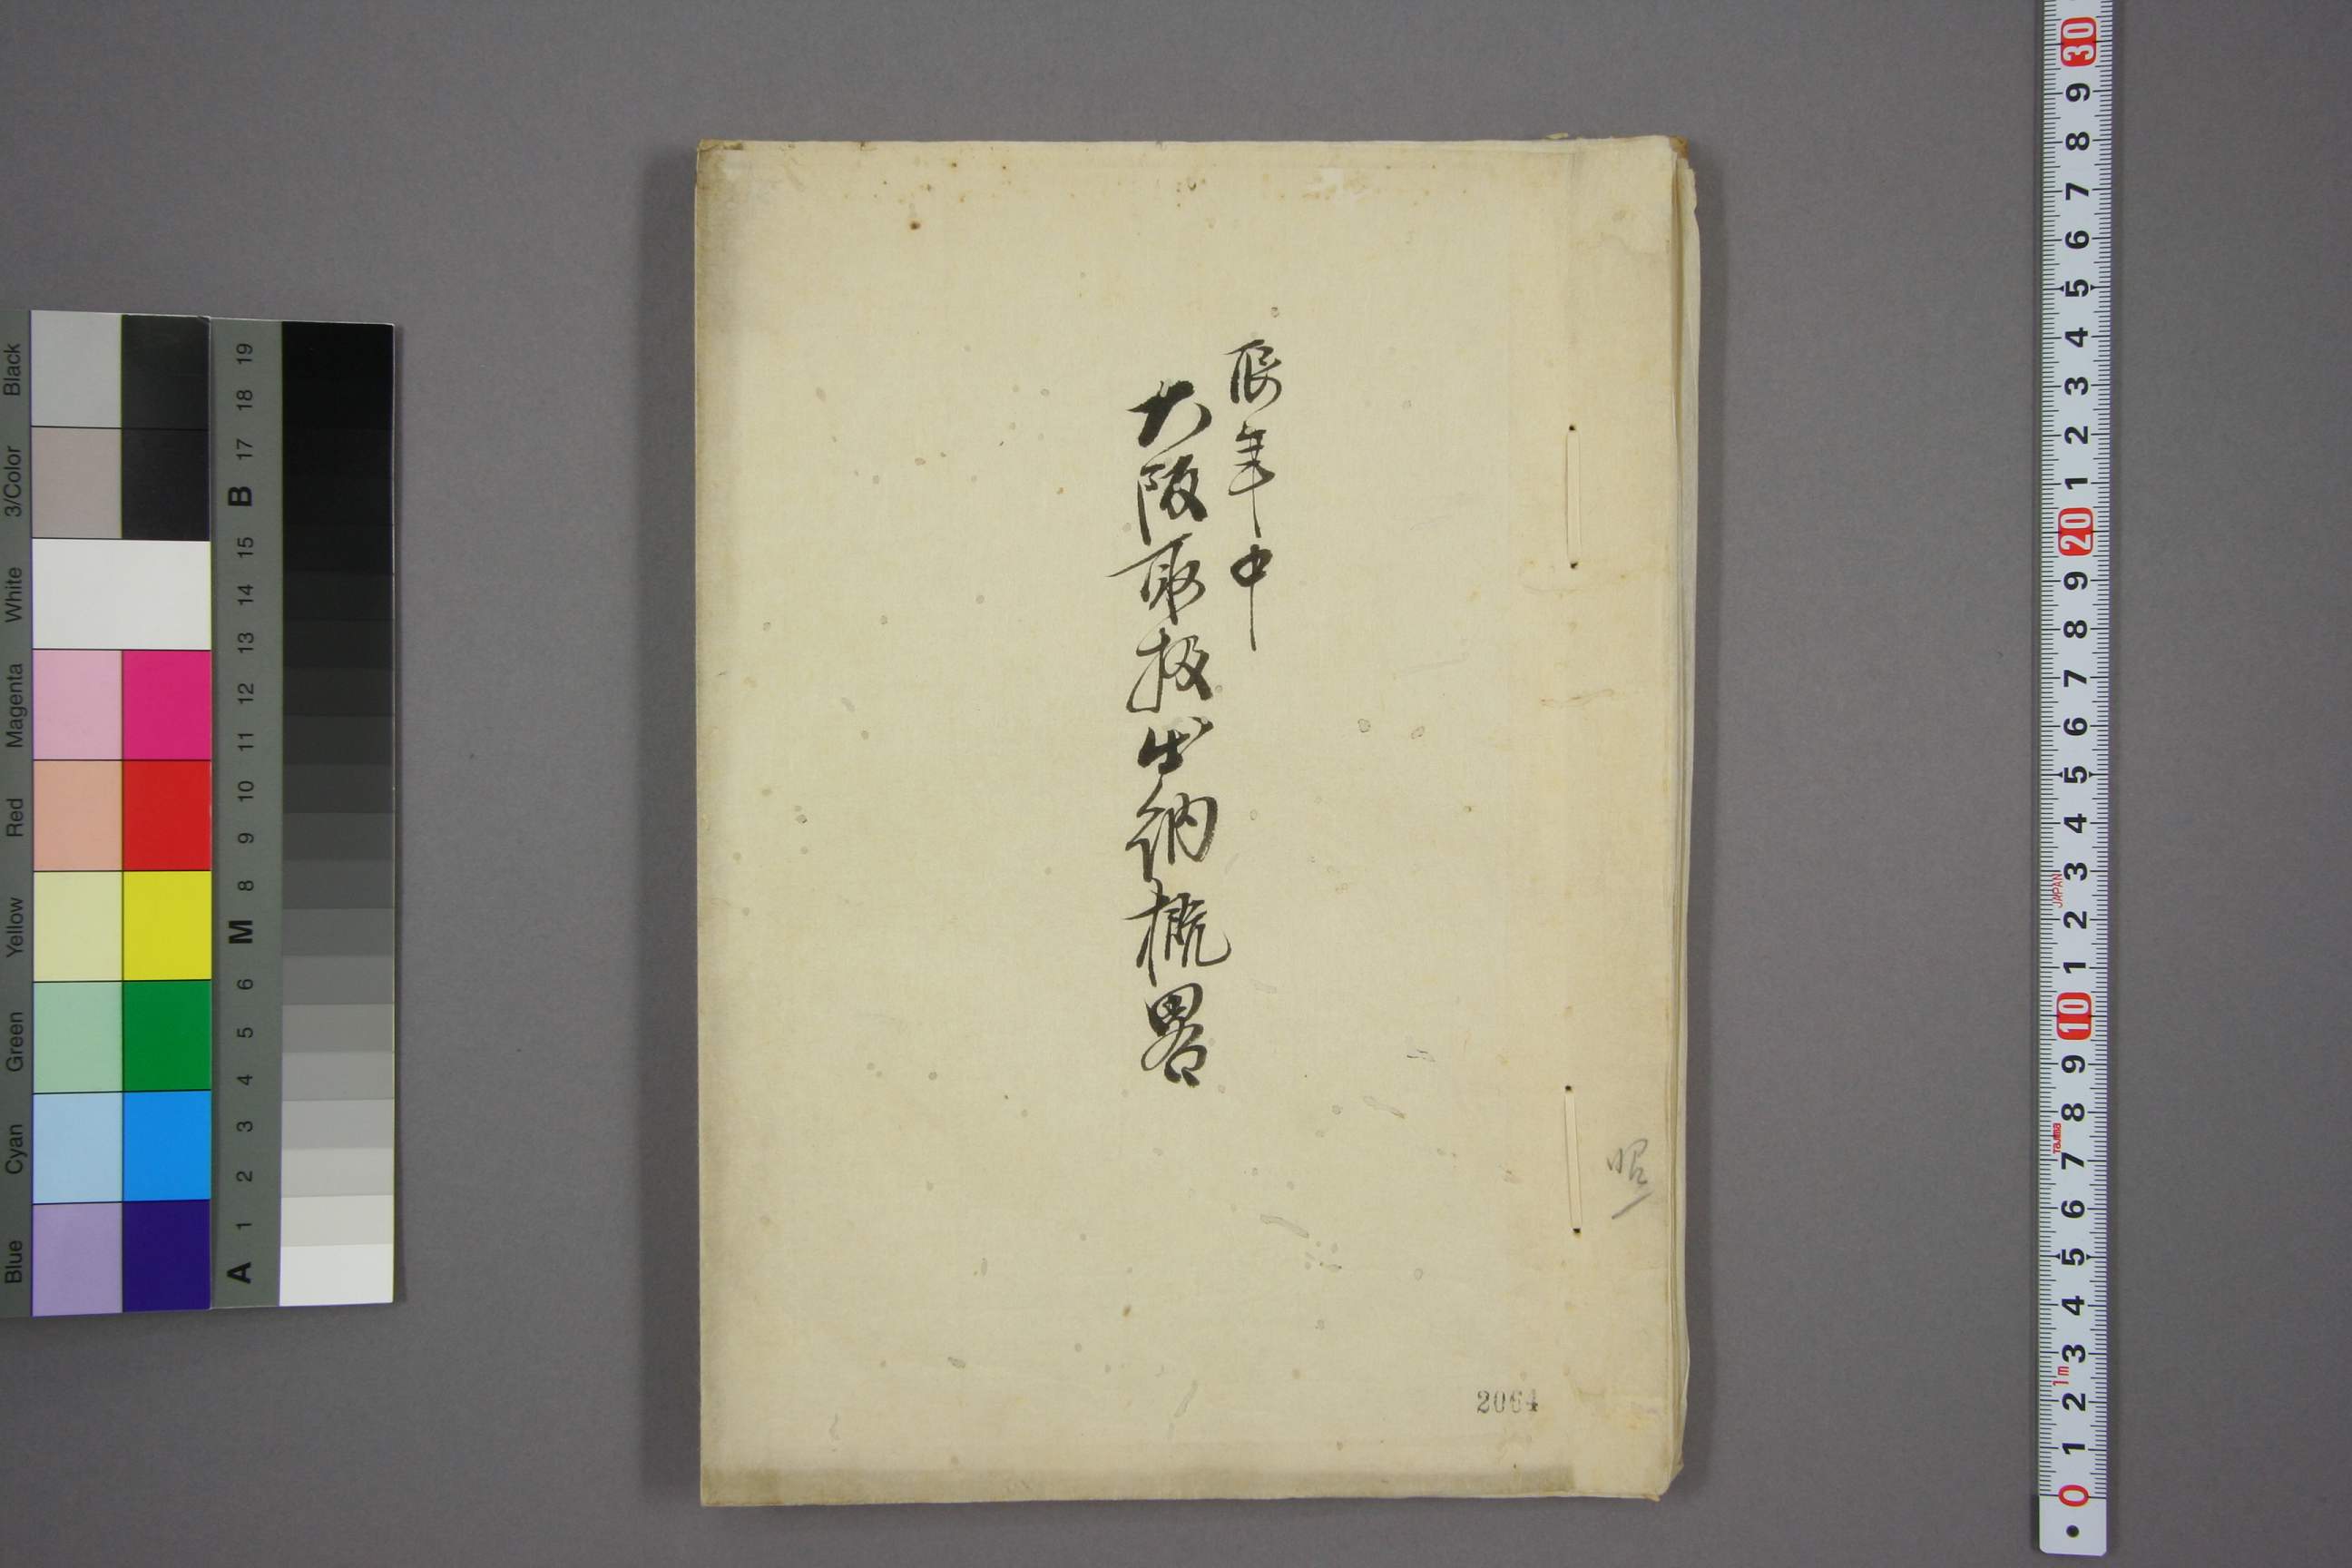 辰年中
大阪取扱出納概畧
昭
2064
Black
3/Color
White
Magenta
Red
Yellow
Green
Cyan
Blue
19
18
17
B
15
14
13
12
11
10
9
8
M
6
5
4
3
2
1
A
30
9
8
7
6
5
4
3
2
1
20
9
8
7
6
5
4
3
JAPAN
2
1
10
9
8
Tajima
7
6
5
4
3
1m
2
1
0